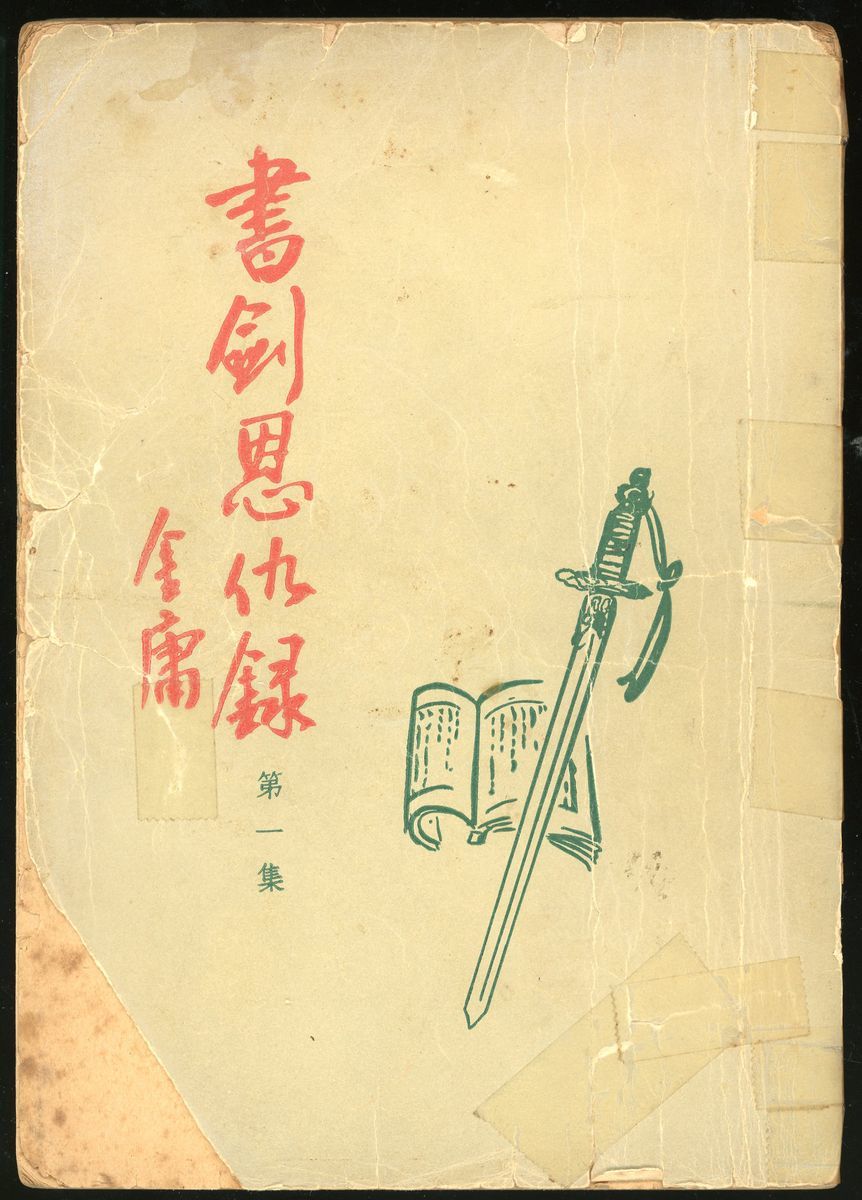 書劍恩仇録
第一集
金庸